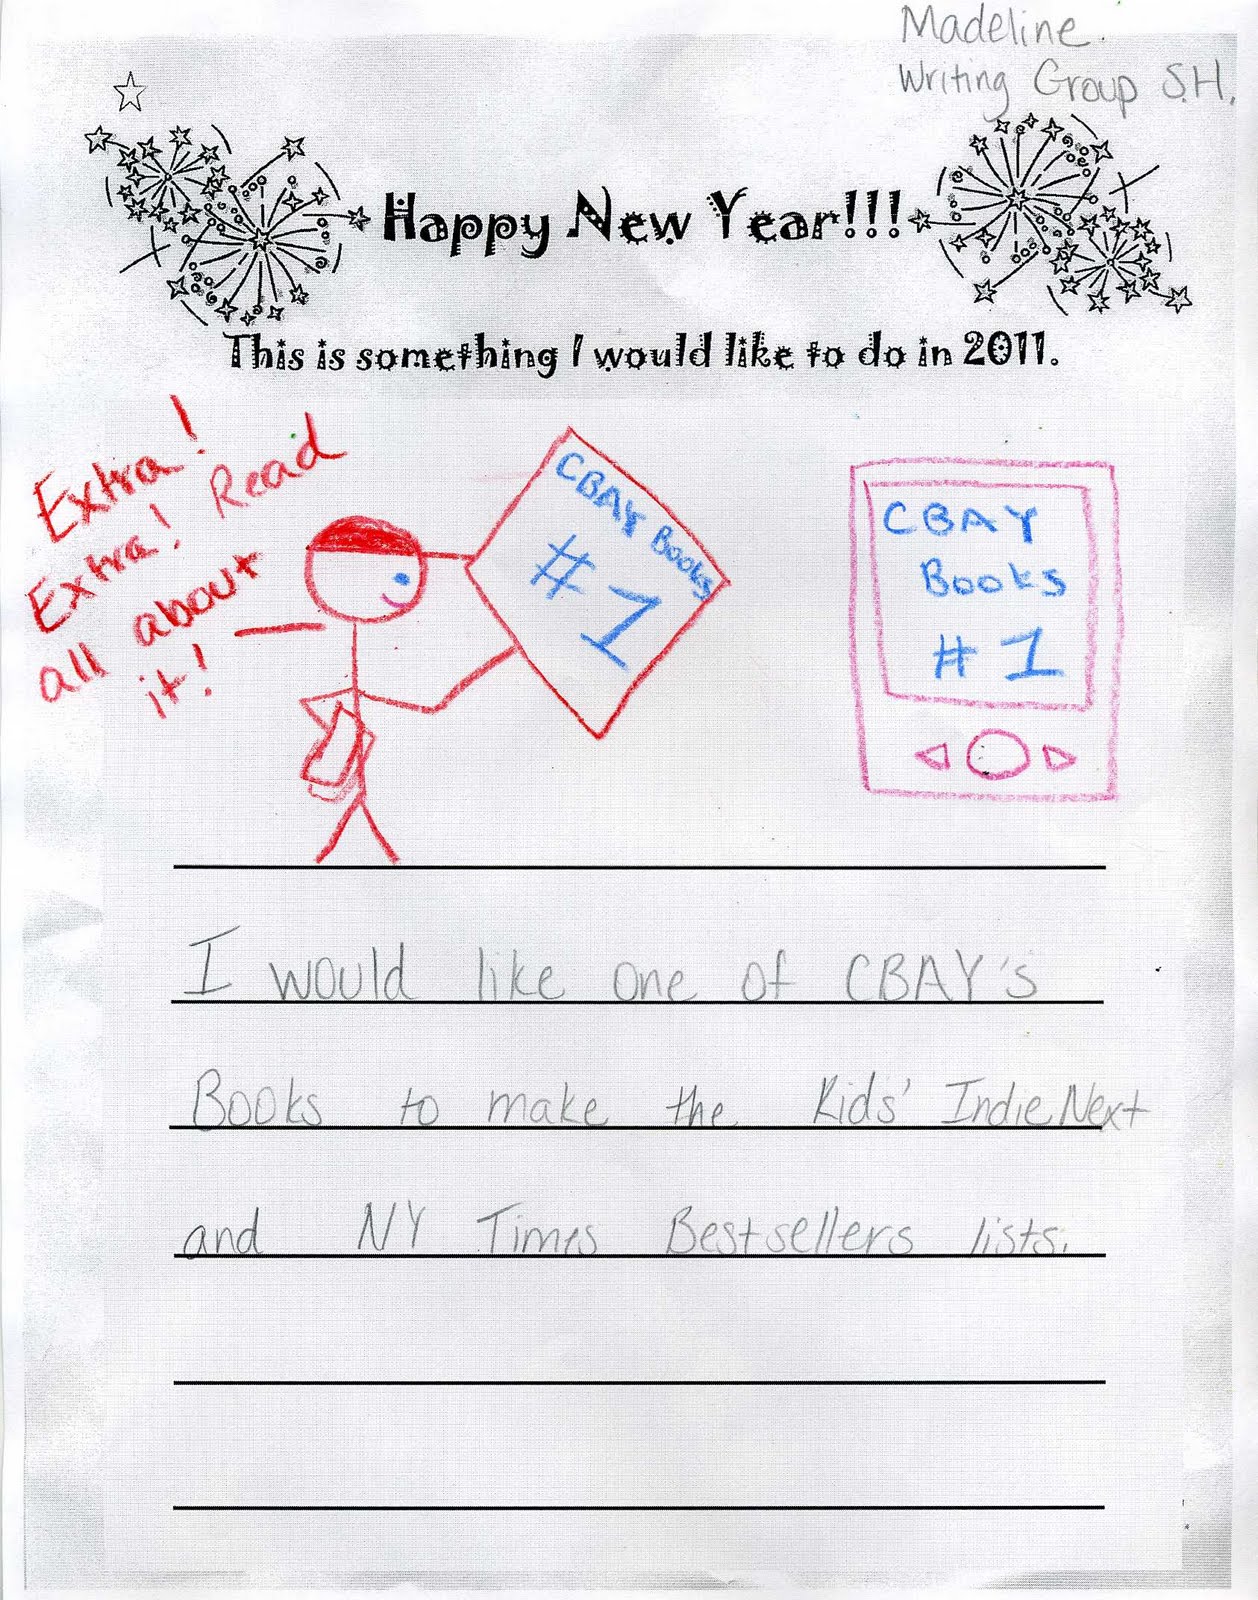 Madeline.
Writing Group S.H.
Happy New Year!!!
This is something I would like to do in 2011.
Extra!
Extra! Read
all about
it!
CBAY Books
#1
CBAY
Books
#1
I would like one of CBAY's
Books to make the Kids' Indie Next
and NY Times Bestsellers lists.